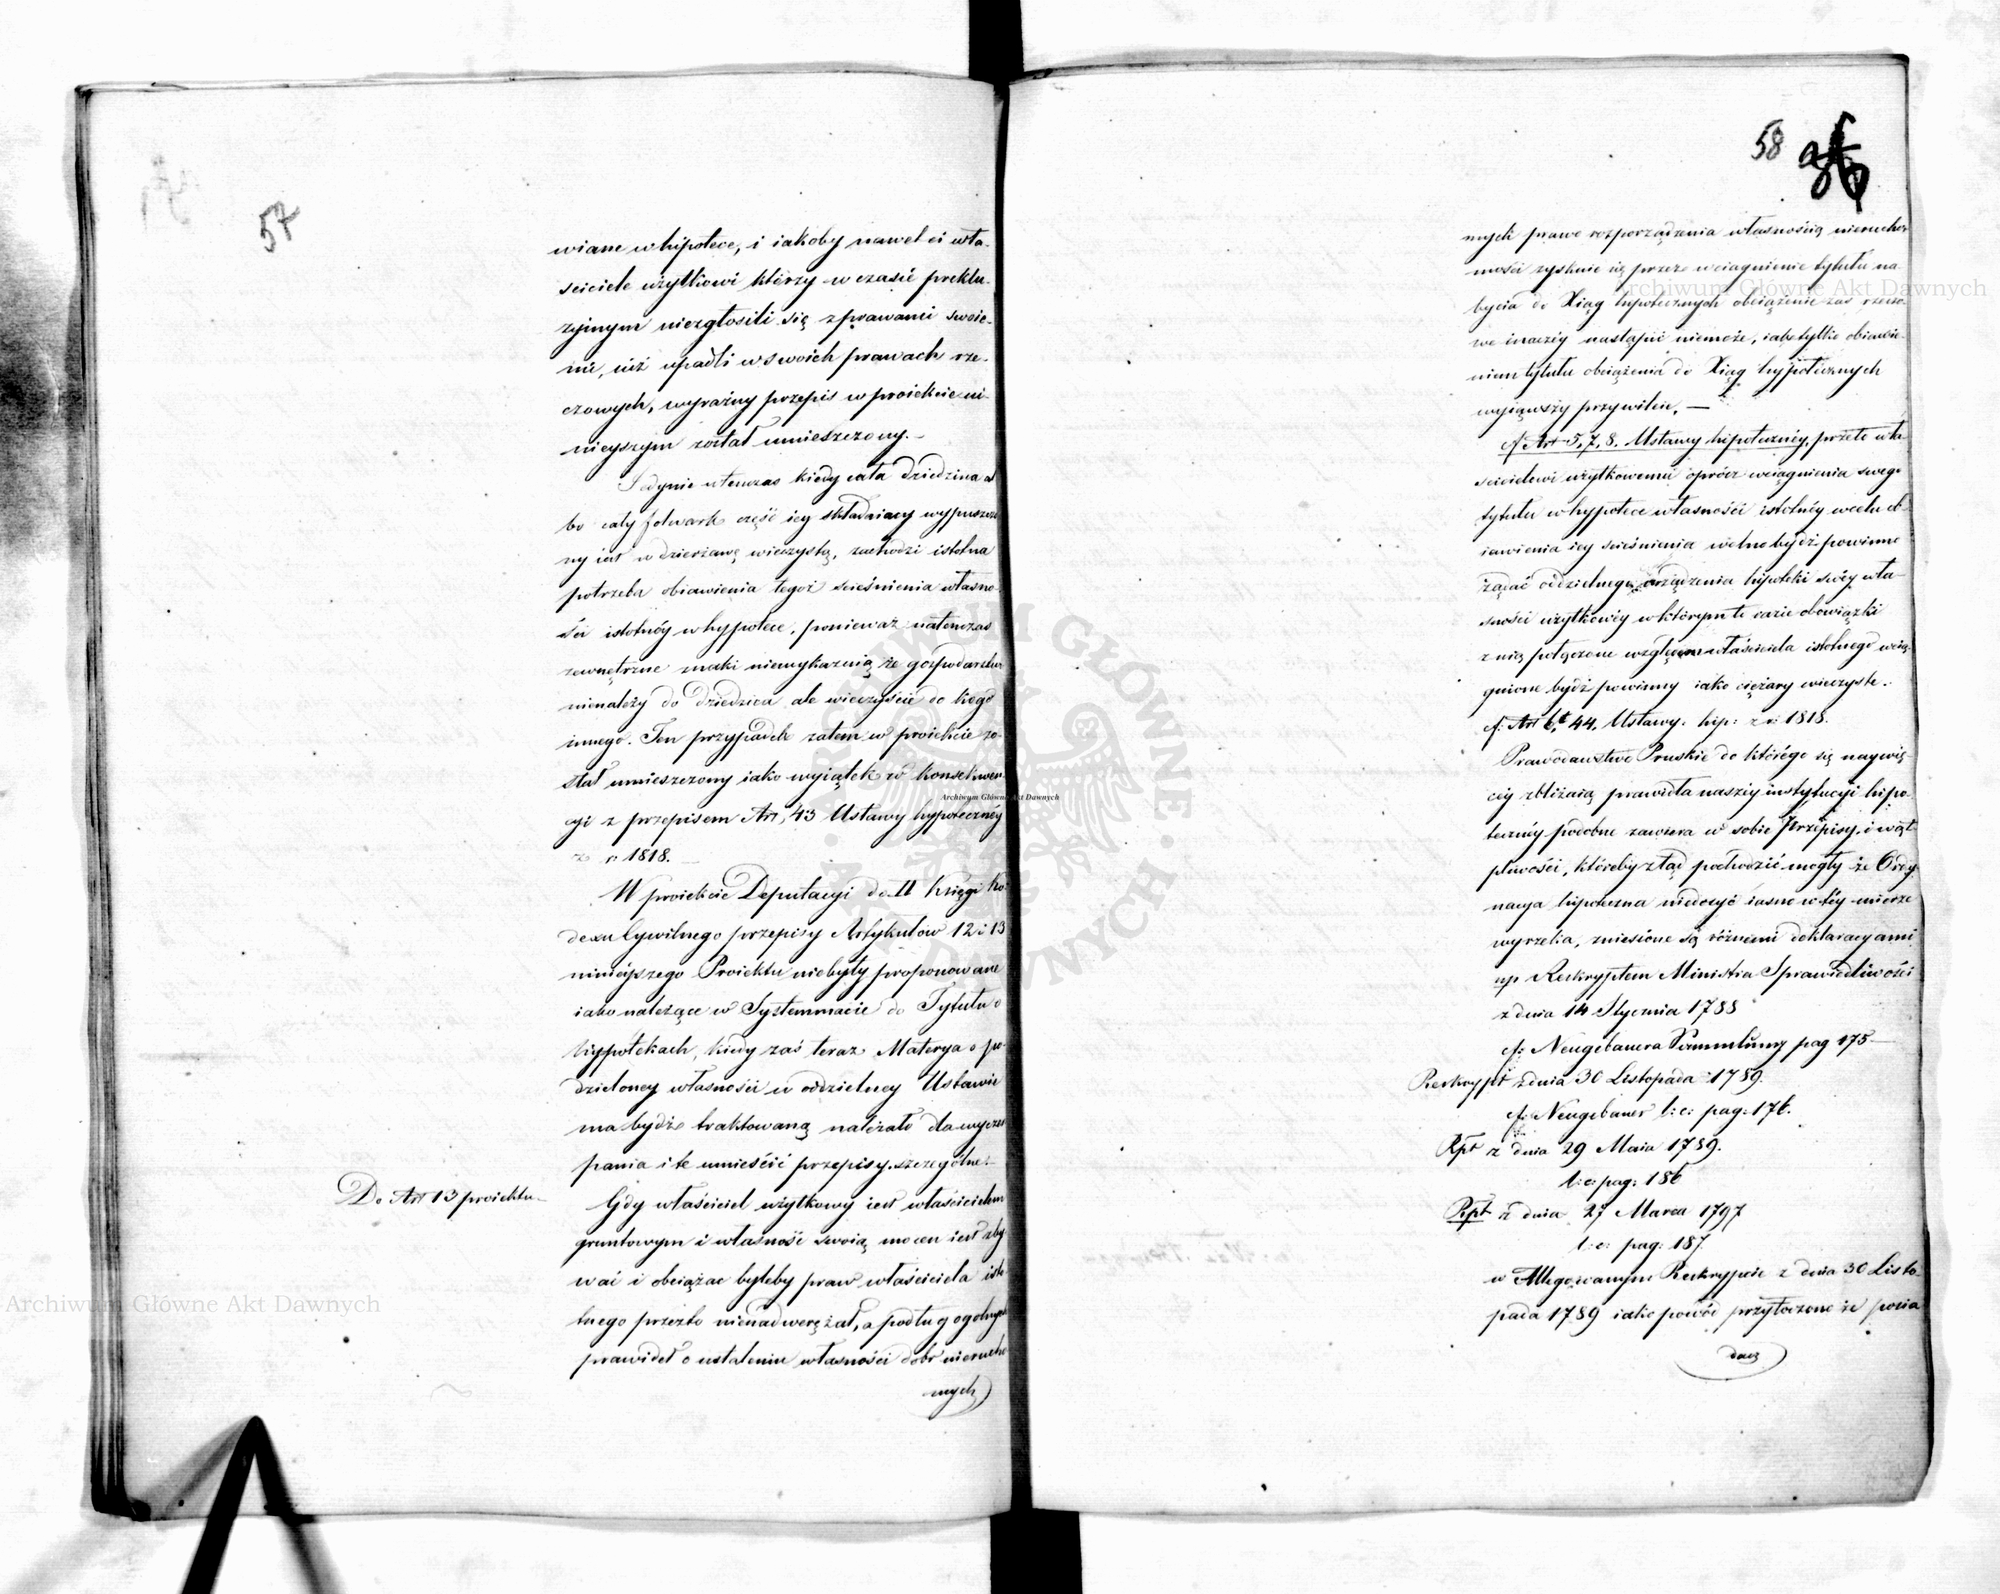 57
wiane w hipotece, i iakoby nawet ci wła-
sciciele użytkowi którzy w czasie preklu-
zyjnym niezgłosili się z prawami swoie-
mi, iuż upadli w swoich prawach rze-
czowych, wyraźny przepis w proiekcie ni-
nieyszym został umieszczony. –
Jedynie wtenczas kiedy cała dziedzina al
bo cały folwark część iey składaiący wypuszczo
ny iest w dzierżawę wieczystą, zachodzi istotna
potrzeba obiawienia tegoż scieśnienia własno-
ści istotnéy w hypotece, ponieważ natenczas
zewnętrzne znaki niewykazuią że gospodarstwo
nienależy do dziedzica ale wieczyście do kogo
innego. Ten przypadek zatem w proiekcie zo-
stał umieszczony iako wyiątek w konsekwen-
cyi z przepisem Art, 43 Ustawy hypoteczney
z r 1818. –
W proiekcie Deputacyi do II Księgi Ko-
dexu Cywilnego przepisy Artykułów 12 i 13
ninieyszego Proiektu niebyły proponowane
iako należące w Systemmacie do Tytułu o
hyppotekach, kiedy zaś teraz Materya o po-
dzieloney własności w oddzielney Ustawie
ma bydź traktowaną należało dla wyczer
pania i te umieścić przepisy szczególne. –
Do Art 13 proiektu –
Gdy właściciel użytkowy iest właścicielem
gruntowym i własność swoią mocen iest zby
wać i obciążać byleby praw właściciela isto
tnego przezto nienadwerężał, a podług ogólnych
prawideł o ustaleniu własności dóbr nierucho
mych
58
mych prawo rozporządzenia własnością nierucho
mości zyskuie się przez wciągnienie tytułu na
bycia do Xiąg hipotecznych obciążenie zaś rzeczo
we inaczéy nastąpić niemoże, iak tylko obiawie
niem tytułu obciążenia do Xiąg hypotecznych
wyiąwszy przywileie, —
cf Art 5, 7, 8. Ustawy hipotecznéy, przeto wła
ścicielowi użytkowemu oprócz wciągnienia swego
tytułu w hypotece własności istotnéy w celu ob
iawienia iey scieśnienia wolno bydź powinno
żądać oddzielnego urządzenia hipoteki swéy wła–
sności użytkowéy w którym to razie obowiązki
z nią połączone względem właściciela istotnego wcią
gnione bydź powinny iako ciężary wieczyste.
cf: Art 6, 44, Ustawy. hip: z r: 1818.
Prawodawstwo Pruskie do którégo się naywię
cey zbliżaią prawidła naszéy instytucyi hipo-
tecznéy podobne zawiera w sobie Przepisy, i wąt
pliwości, któreby ztąd pochodzić mogły że Ordy
nacya hipoteczna niedosyć iasno w téy mierze
wyrzeka, zniesione są różnemi deklaracyami
np Reskryptem Ministra Sprawiedliwości
z dnia 14 Stycznia 1788
cf: Neugebauera Sammlung pag 175 –
Reskrypt z dnia 30 Listopada 1789.
cf: Neugebauer l: c: pag: 176.
Rpt z dnia 29 Maia 1789.
l: c: pag: 186
Rpt z dnia 27 Marca 1797
l: c: pag: 187.
w Allegowanym Reskrypcie z dnia 30 Listo-
pada 1789 iako powód przytoczono że posia
dacz
Archiwum Główne Akt Dawnych
Archiwum Główne Akt Dawnych
Archiwum Główne Akt Dawnych
ARCHIWUM GŁÓWNE · AKT DAWNYCH ·